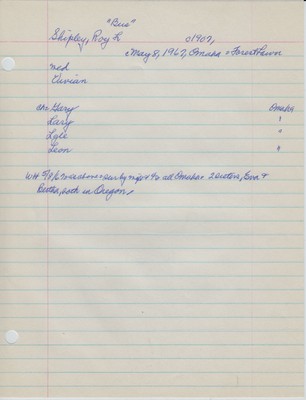 "Bus"
Shipley, Roy L c1907,
May 8, 1967, Omaha = Forest Lawn
med
Vivian
ch: Gary Omaha
Lary "
Lyle "
Leon "
WH 5/9/67 = surv by mjp + 4s all Omaha = 2 sisters, Eva +
Bertha, both in Oregon,